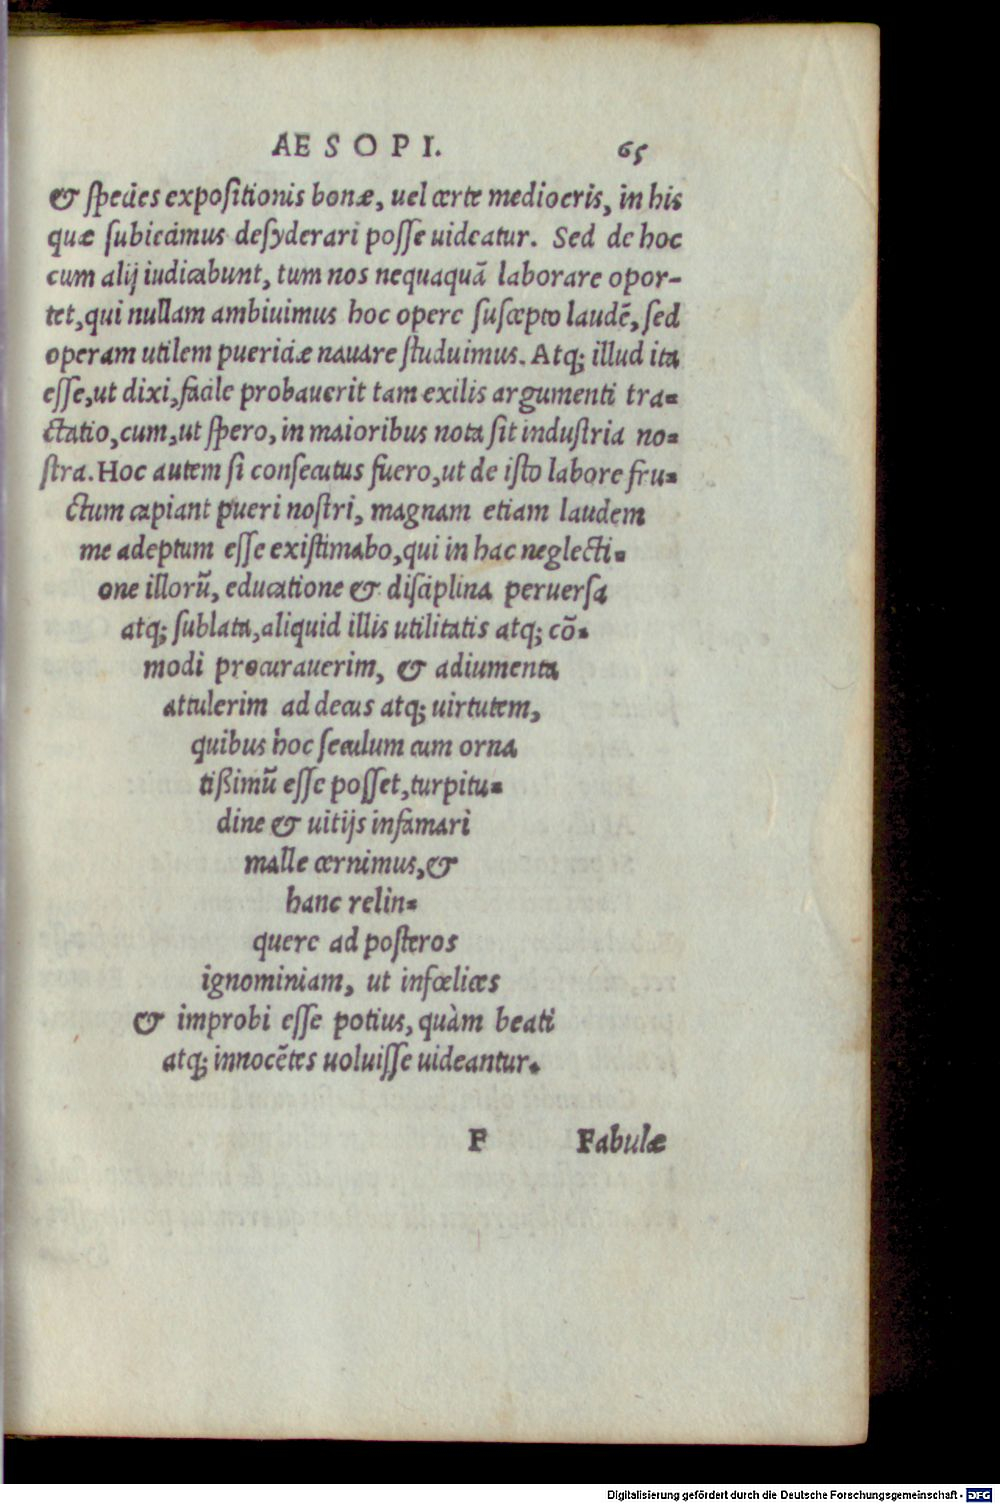 AESOPI. 65
& species expositionis bonæ, uel certe mediocris, in his
quæ subiecimus desyderari posse uideatur. Sed de hoc
cum alij iudicabunt, tum nos nequaquā laborare opor-
tet, qui nullam ambiuimus hoc opere suscepto laudē, sed
operam utilem puericiæ nauare studuimus. Atq; illud ita
esse, ut dixi, facile probauerit tam exilis argumenti tra-
ctatio, cum, ut spero, in maioribus nota sit industria no-
stra. Hoc autem si consecutus fuero, ut de isto labore fru-
ctum capiant pueri nostri, magnam etiam laudem
me adeptum esse existimabo, qui in hac neglecti-
one illorū, educatione & disciplina peruersa
atq; sublata, aliquid illis utilitatis atq; cō-
modi procurauerim, & adiumenta
attulerim ad decus atq; uirtutem,
quibus hoc seculum cum orna
tißimū esse posset, turpitu-
dine & uitijs infamari
malle cernimus, &
hanc relin-
quere ad posteros
ignominiam, ut infœlices
& improbi esse potius, quàm beati
atq; innocētes uoluisse uideantur.
F Fabulæ
Digitalisierung gefördert durch die Deutsche Forschungsgemeinschaft - DFG